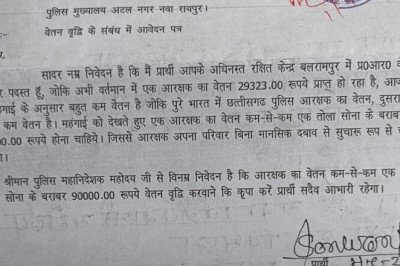 पुलिस मुख्यालय अटल नगर नवा रायपुर।
वेतन वृद्धि के संबंध में आवेदन पत्र
सादर नम्र निवेदन है कि मैं प्रार्थी आपके अधिनस्त रक्षित केन्द्र बलरामपुर में प्र0आर0
पदस्त हूँ, जोकि अभी वर्तमान में एक आरक्षक का वेतन 29323.00 रूपये प्राप्त हो रहा है, आज
के अनुसार बहुत कम वेतन है जोकि पुरे भारत में छत्तीसगढ पुलिस आरक्षक का वेतन, दुसरा
कम वेतन है। महंगाई को देखते हुए एक आरक्षक का वेतन कम-से-कम एक तोला सोना के बराबर
00.00 रूपये होना चाहिये। जिससे आरक्षक अपना परिवार बिना मानसिक दबाव से सुचारू रूप से
श्रीमान पुलिस महानिदेशक महोदय जी से विनम्र निवेदन है कि आरक्षक का वेतन कम-से-कम एक
सोना के बराबर 90000.00 रूपये वेतन वृद्धि करवाने कि कृपा करें प्रार्थी सदैव आभारी रहेगा।
प्रार्थी